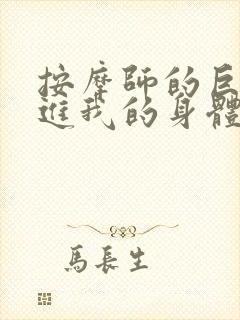 按摩師的巨
進我的身體
馬長生